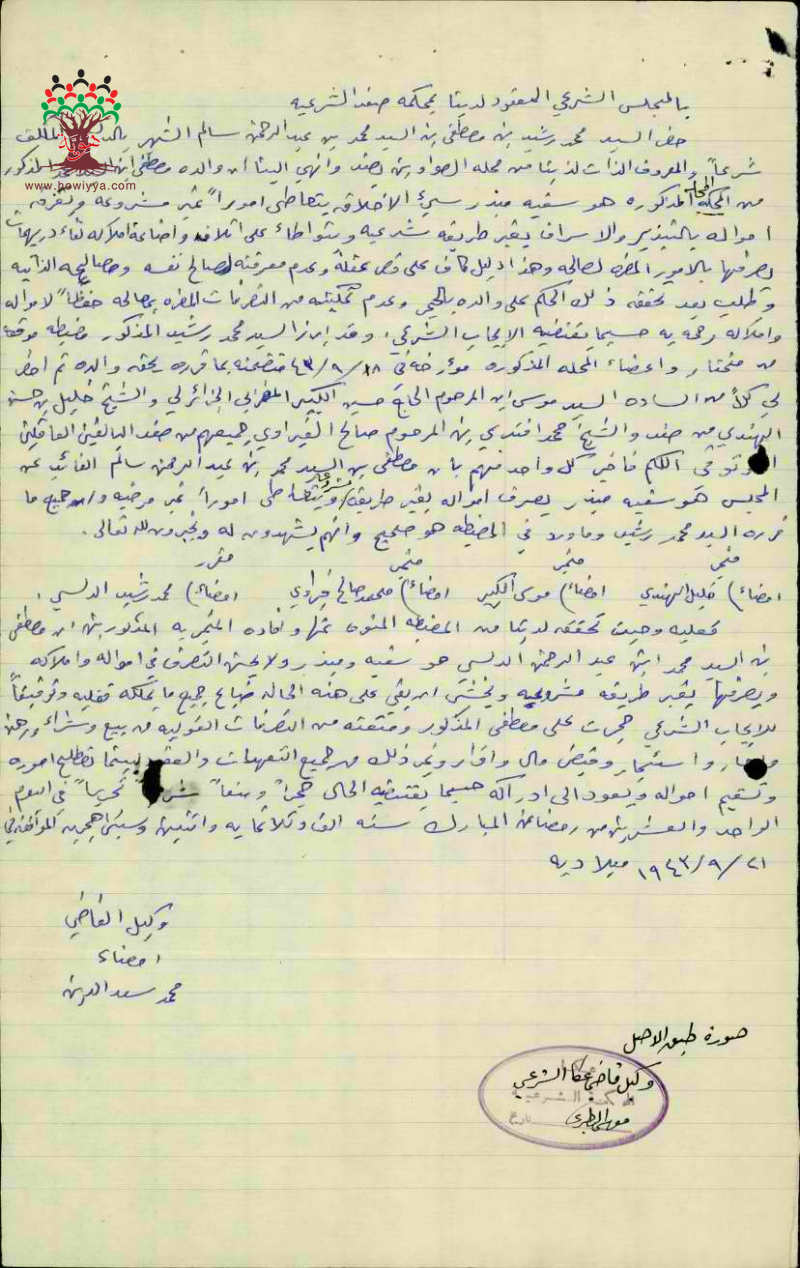 بالمجلس الشرعي المعقود لدينا بمحكمة صفد الشرعيه
حضر السيد محمد رشيد بن مصطفى بن السيد محمد بن عبد الرحمن سالم الشهير المكلف
شرعاً والمعروف الذات لدينا من محله الصواوين بصفد وانهى الينا ان والده مصطفى ابن المذكور
www.howiyya.com
من المحله المذكوره هو سفيه مبذر سيئ الاخلاق يتعاطى اموراً غير مشروعه وتفرقه
امواله بالتبذير والاسراف بغير طريقه شرعيه ويتواطاء على اتلاف واضاعة املاكه لقاء دريهمات
يصرفها بالامور المضره لصالحه وهذا دليل كاف على نقص عقله وعدم معرفته لصالح نفسه ومصالحه الذاتيه
وطلب بعد تحققه ذلك الحكم على والده بالحجر وعدم تمكينه من التصرفات المضره بصالحه حفظاً لامواله
واملاكه رحمه به حسبما تقتضيه الايجاب الشرعي، وقد ابرز السيد محمد رشيد المذكور مضبطه موقعه
من مختار واعضاء المحله المذكوره مؤرخه في ١٨/٩/٤٣ متضمنه بما قرره بحق والده ثم احضر
لي كلاً من الساده السيد موسى ابن المرحوم الحاج حسين الكبير المغربي الجزائرلي والشيخ خليل بن حسن
الهندي من صفد والشيخ محمد افندي بن المرحوم صالح القيراوي جميعهم من صفد البالغين العاقلين
فاخبر كل واحد منهم بان مصطفى بن السيد محمد بن عبد الرحمن سالم الغائب عن
المجلس هو سفيه مبذر يصرف امواله بغير طريقه شرعيه ويتعاطى اموراً غير مرضيه وان جميع ما
قرره السيد محمد رشيد وما ورد في المضبطه هو صحيح وانهم يشهدون له ويخبرون لله تعالى.
مخبر مخبر مخبر مقرر
امضاء) خليل الهندي امضاء) موسى الكبير امضاء) محمد صالح قيراوي امضاء) محمد رشيد الدلسي.
فعليه وحيث تحققه لدينا من المضبطه المنوه عنها وافاده المخبرين المذكورين ان مصطفى
بن السيد محمد ابن عبد الرحمن الدلسي هو سفيه ومبذر ولا يحسن التصرف في امواله واملاكه
ويصرفها بغير طريقه مشروعه ويخشى ان بقي على هذه الحاله ضياع جميع ما يملكه فعليه وتوفيقاً
للايجاب الشرعي حجرت على مصطفى المذكور ومنعته من التصرفات القوليه من بيع وشراء ورهن
واستئجار وقبض مال واقرار وغير ذلك من جميع التعهدات والعقود لبينما تصطلح اموره
وتستقيم احواله ويعود الى ادراكه حسبما يقتضيه الحال حجراً ومنعاً شرعياً تحريراً في اليوم
الواحد والعشرين من رمضان المبارك سنه الف وثلاثمايه واثنين وستين هجريه الموافقه في
٢١/٩/١٩٤٣ ميلاديه
وكيل القاضي
امضاء
محمد سعد الدين
صورة طبق الاصل
وكيل قاضي عكا الشرعي
المحكمة الشرعية
موسى الطبري
تاريخ